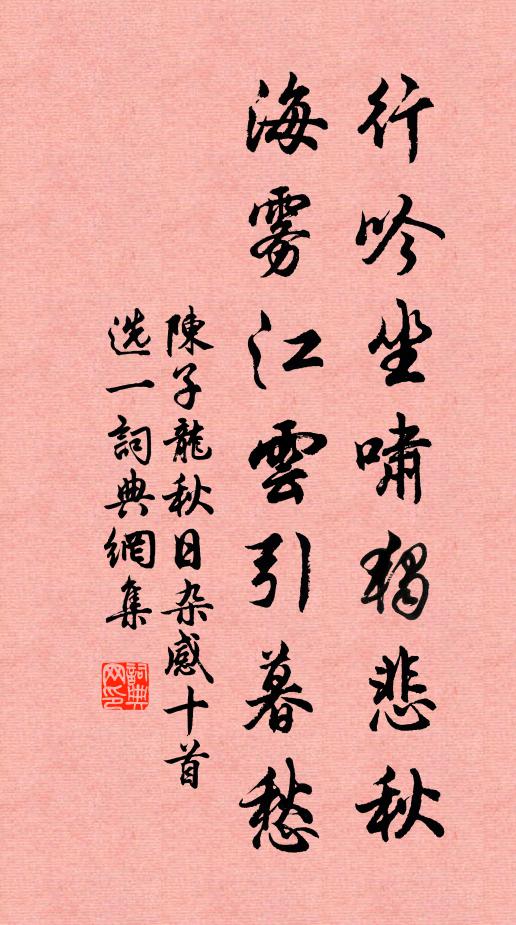 行吟坐啸獨悲秋
海雾江雲引暮愁
陳子龍秋日杂感十首
选一詞典網集
詞典
网印